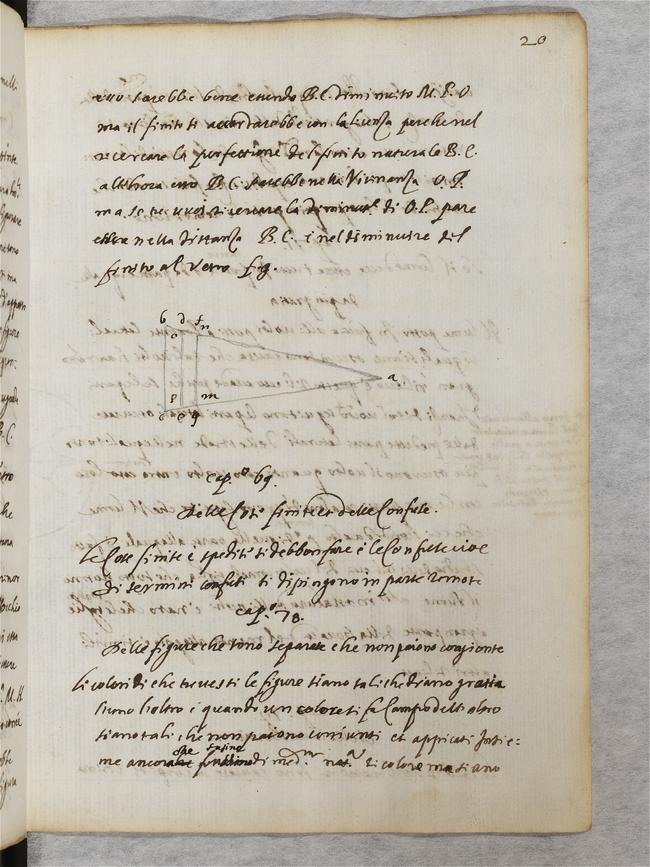 20
sarebbe bene essendo B.C. diminuito M. P. O
ma il finito si accordarebbe con la licenza perche nel
ricercare la perfettione del finito naturale B.C.
allhora esso B.C. sarebbe nella Vicinanza O.P.
ma se tu vuoi servare la diminut.e di O.P. pare
essere nella distanza B.C. e nel diminuire del
finito al Vetro f.g.
b d f n
o
a
p m
c e g
cap.º 69.
Delle Cose finite et delle Confuse.
Le Cose finite e spedite si debbon fare e le Confuse cioe
di termini confusi si dipingono in parte remote
cap.º 78.
Delle figure che sono separate che non paiono congionte
li colori di che tu vesti le figure siano tali che diano gratia
l'uno l'altro e quando un colore si fa Campo dell altro
siano tali che non paiono coniunti et appicati Insie=
me ancora che fusino di med.mª nat.ª di colore ma siano